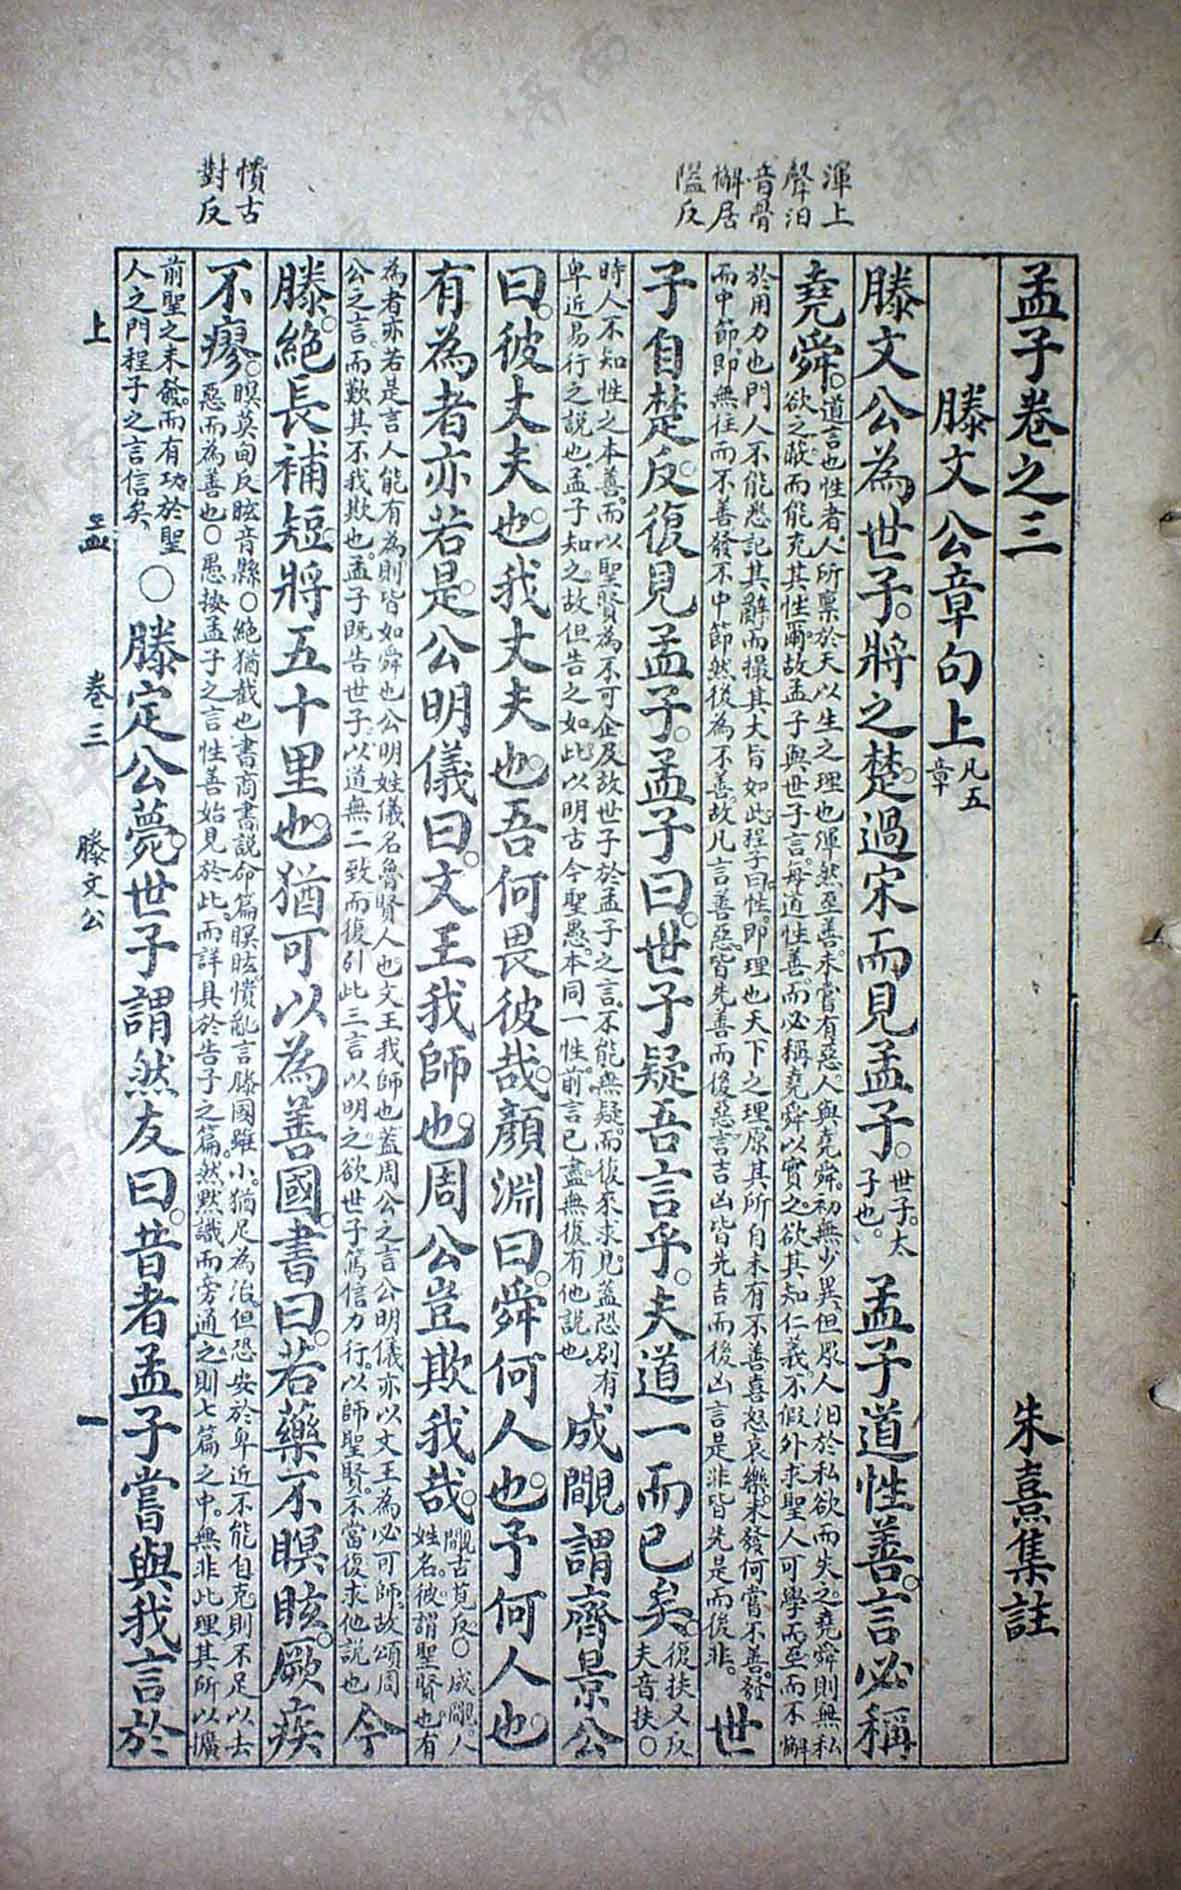 渾上
聲汨
音骨
懈居
隘反
憒古
對反
孟子卷之三
朱熹集註
滕文公章句上凡五章
滕文公為世子。將之楚。過宋而見孟子。世子。太子也。孟子道性善。言必稱
堯舜。道言也性者人所稟於天以生之理也渾然至善。未嘗有惡人與堯舜。初無少異但眾人汨於私欲而失之。堯舜則無私欲之蔽而能充其性爾。故孟子與世子言。每道性善。而必稱堯舜以實之。欲其知仁義。不假外求聖人可學而至而不懈
於用力也門人不能悉記其辭而撮其大旨如此。程子曰性。即理也天下之理。原其所自未有不善喜怒哀樂。未發何嘗不善。發而中節。即無往而不善發不中節然後為不善。故凡言善惡。皆先善而後惡言吉凶皆先吉而後凶言是非皆先是而後非。世
子自楚反。復見孟子。孟子曰。世子疑吾言乎。夫道一而已矣。復扶又反夫音扶。○
時人不知性之本善。而以聖賢為不可企及故世子於孟子之言不能無疑。而復來求見。蓋恐別有卑近易行之說也。孟子知之。故但告之如此。以明古今聖愚。本同一性。前言已盡。無復有他說也。成覵。謂齊景公
曰。彼丈夫也。我丈夫也。吾何畏彼哉。顏淵曰。舜何人也。予何人也
有為者亦若是。公明儀曰。文王我師也。周公豈欺我哉。覵古莧反○成覵。人姓名。彼謂聖賢也。有
為者亦若是言人能有為。則皆如舜也公明姓儀名魯賢人也文王我師也蓋周公之言公明儀亦以文王為必可師。故頌周公之言。而歎其不我欺也。孟子既告世子。以道無二致而復引此三言以明之。欲世子篤信力行。以師聖賢。不當復求他說也今
滕。絕長補短將五十里也。猶可以為善國。書曰。若藥不瞑眩。厥疾
不瘳。瞑莫甸反眩音縣○絕猶截也書商書說命篇瞑眩憒亂言滕國雖小。猶足為治。但恐安於卑近不能自克則不足以去惡而為善也○愚按孟子之言性善始見於此。而詳具於告子之篇。然默識而旁通之則七篇之中。無非此理其所以擴
前聖之未發。而有功於聖人之門程子之言信矣○滕定公薨。世子謂然友曰。昔者孟子嘗與我言於
上 孟 卷三 滕文公 一